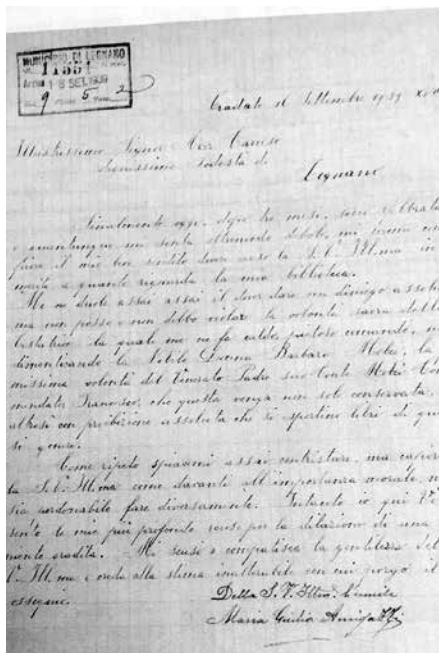 MUNICIPIO DI LEGNANO
11551
Arrivo 18 SET. 1939
9 5 2
Tradate 16 Settembre 1939 XVII
Illustrissimo Signor Cav.
Degnissimo Podestà di
Legnano
Finalmente oggi, dopo tre mesi, sono
e quantunque mi senta oltremodo debole, mi
fare il mio ben sentito dovere verso la S. V. Ill.ma in
merito a quanto riguarda la mia biblioteca.
Me ne duole assai assai il dover dare un diniego assoluto
ma non posso e non debbo violar la volontà sacra della
la quale me ne fa caldo, pietoso comando, non
dimenticando la Nobile Donna Barbara Melzi, la
volontà del Venerato Padre suo Conte Melzi
Francesco, che questa venga non sol conservata,
altresì con proibizione assoluta che si asportino libri di
si genere.
Come ripeto spiacemi assai contristare, ma
la S. V. Ill.ma come davanti all'importanza morale, non
sia fare diversamente. Intanto io qui
le mie più profonde scuse per la dilazione di una
Mi scusi e compatisca la gentilezza della
V. Ill.ma e creda alla stima inalterabile con cui porgo il
ossequi.
Della S. V. Ill.ma Umile
Maria Giulia